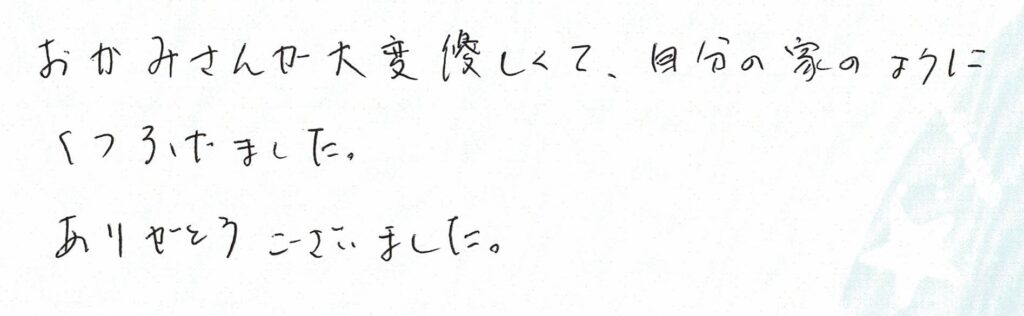 おかみさんが大変優しくて、自分の家のように
くつろげました。
ありがとうございました。